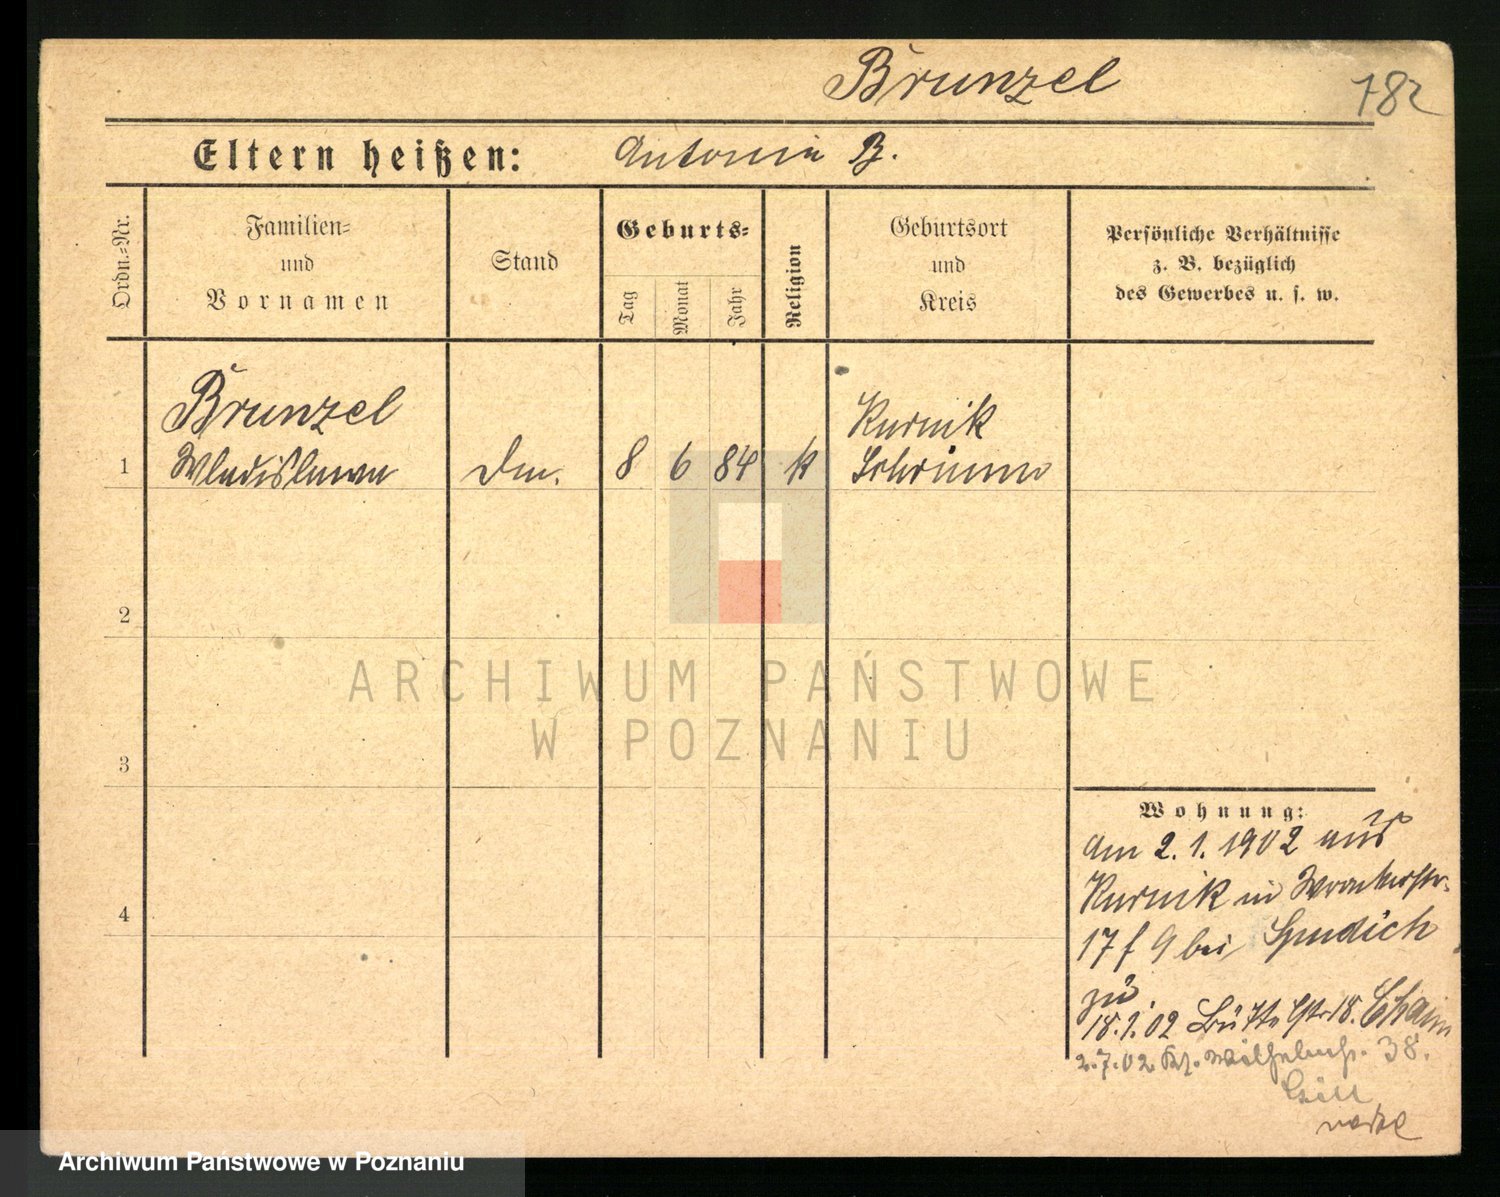 Brunzel
782
Eltern heißen: Antonin B.
Ordn.-Nr.
Familien-
und
Vornamen
Stand
Geburts-
Tag
Monat
Jahr
Religion
Geburtsort
und
Kreis
Persönliche Verhältnisse
z. B. bezüglich
des Gewerbes u. s. w.
Brunzel
Kurnik
1 Wladislawa 8 6 84 k Schrimm
2
3
4
Wohnung:
am 2. 1. 1902 aus
Kurnik in Wronkerstr.
17 f 9 bei
zu
18.1.02 18. Chaim
2.7.02. 38.
ARCHIWUM PAŃSTWOWE
W POZNANIU
Archiwum Państwowe w Poznaniu